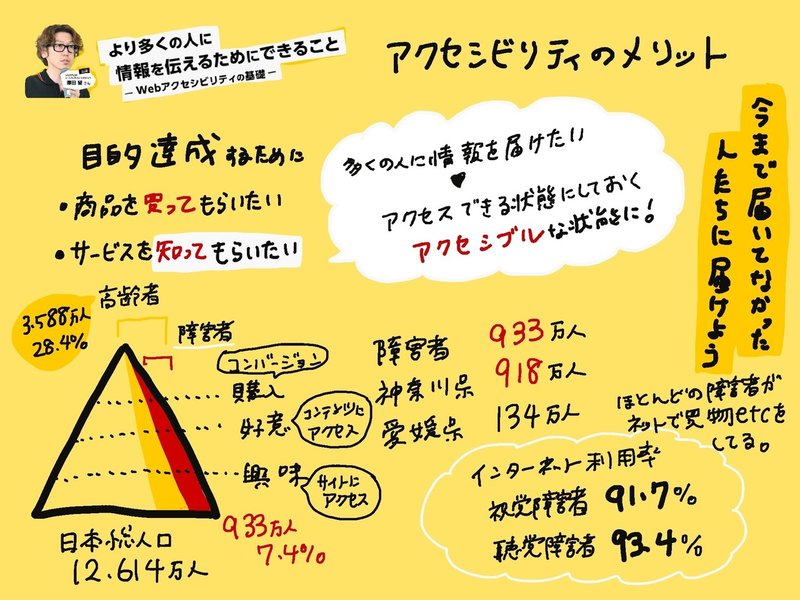 より多くの人に
情報を伝えるためにできること
— Webアクセシビリティの基礎 —
アクセシビリティのメリット
目的達成するために
・商品を買ってもらいたい
・サービスを知ってもらいたい
多くの人に情報を届けたい
アクセスできる状態にしておく
アクセシブルな状態に!
今まで届いてなかった
人たちに届けよう
3.588万人
28.4%
高齢者
障害者
コンバージョン
購入
好意
コンテンツに
アクセス
興味
サイトに
アクセス
933万人
7.4%
日本総人口
12.614万人
障害者 933万人
神奈川県 918万人
愛媛県 134万人
ほとんどの障害者が
ネットで買物etcを
してる。
インターネット利用率
視覚障害者 91.7%
聴覚障害者 93.4%